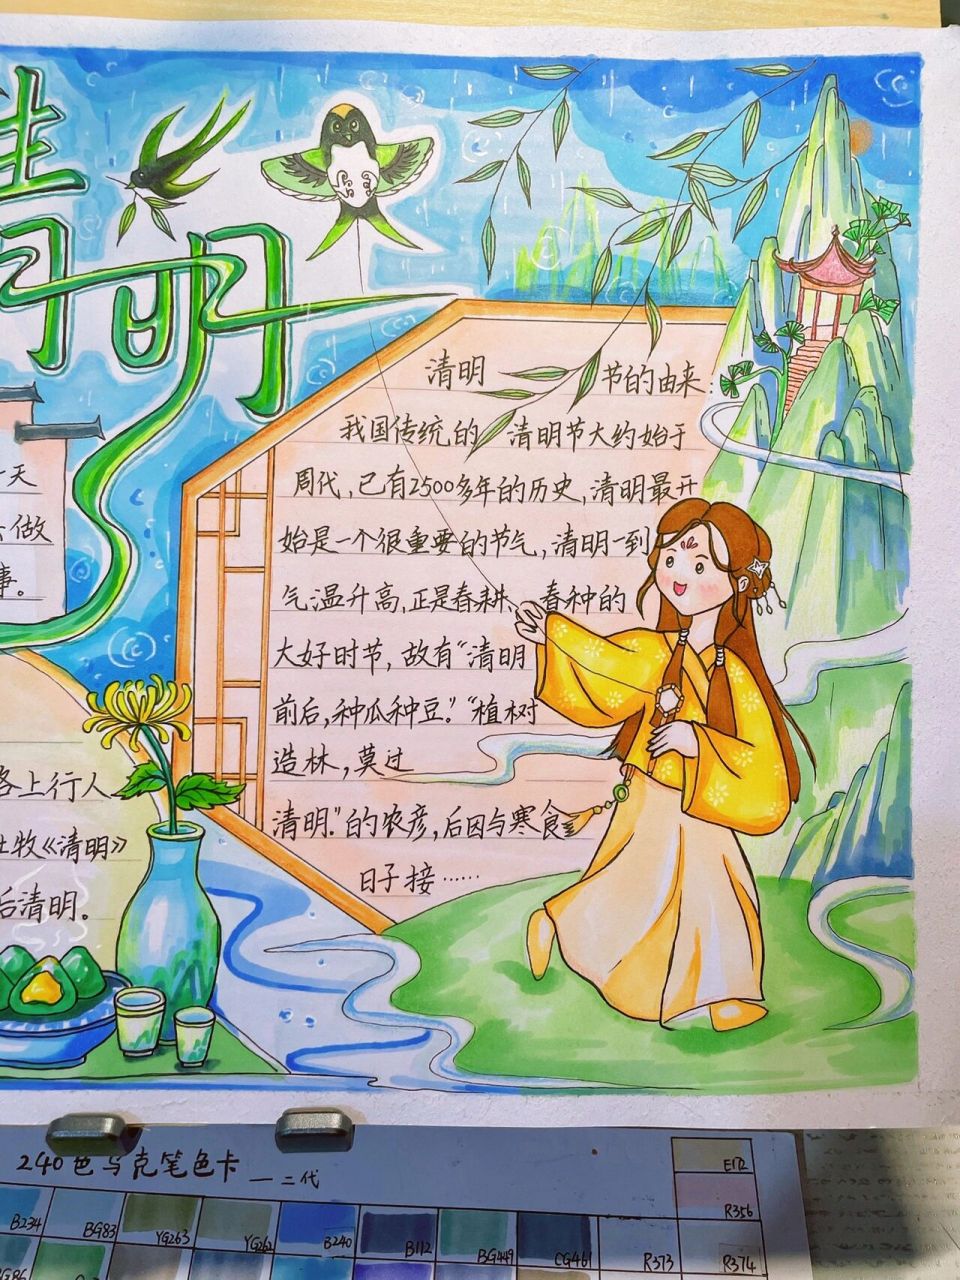 清明
清明节的由来：
我国传统的清明节大约始于
周代，已有2500多年的历史，清明最开
始是一个很重要的节气，清明一到
气温升高，正是春耕、春种的
大好时节，故有“清明
前后，种瓜种豆。”“植树
造林，莫过
清明。”的农彦，后因与寒食
日子接……
天
做
事。
路上行人
杜牧《清明》
后清明。
240色马克笔色卡 — 二代
E172
R356
B234 BG83 YG263 YG262 B240 B112 BG449 CG461 R373 R374
BG86